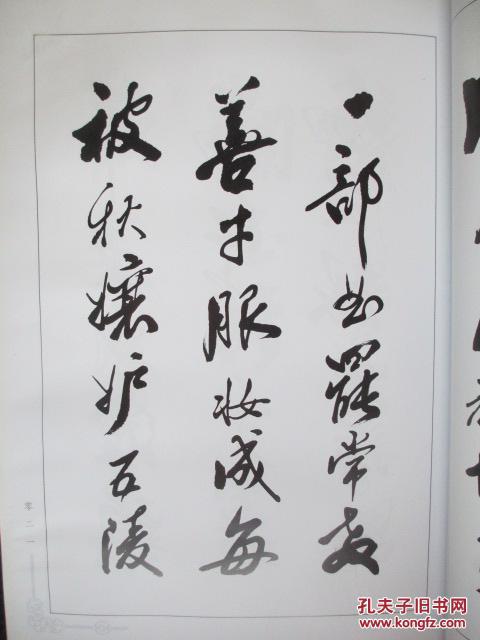 一部曲罷常教
善才服妆成每
被秋孃妒五陵
零二一
孔夫子旧书网
www.kongfz.com